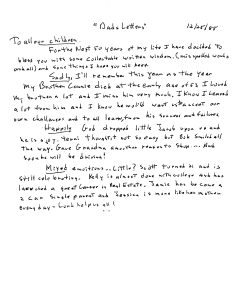 "Dads Letters" 12/25/05
To all our children.
For the Next 50 years of my life I have decided to
bless you with some collectable written wisdom, (mis spelled words
and all) and some things I hope you will keep.
Sadly, I'll remember this year as the year
My Brother Connie died at the early Age of 52 I loved
My brother a lot and I miss him very much, I know I learned
a lot from him and I know he would want us to accept our
own challenges and to all learn from his success and failures.
Happily God dropped little Jacob upon us and
he is a joy. Jenni thought not so easy but Bob Smiled all
the way. Gave Grandma another reason to Shop... And
spoke will be divine!
Mixed emotions... Little? Scott turned 21 and is
still celebrating. Kelly is almost done with college and has
selected a great Career in Real Estate. Jamie has become a
2 Can Single parent and Jessica is more like her mother
every day - Lord help us all!